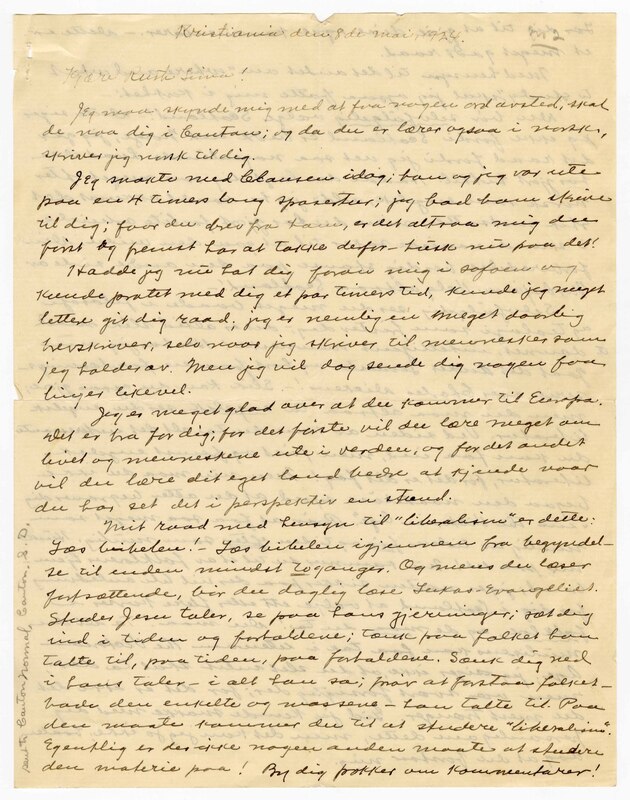 Kristiania den 8de mai, 1924.
Kjære Ruth Sima!
Jeg maa skynde mig med at faa nogen ord avsted, skal
de naa dig i Canton; og da du er lærer ogsaa i norsk,
skriver jeg norsk til dig.
Jeg snakte med Clausen idag; han og jeg var ute
paa en 4 timers lang spasertur; jeg bad ham skrive
til dig; faar du brev fra ham, er det altsaa mig du
først og fremst har at takke derfor – husk nu paa det!
Hadde jeg nu hat dig foran mig i sofaen og
kunde pratet med dig et par timers tid, kunde jeg meget
lettere git dig raad; jeg er nemlig en meget daarlig
brevskriver, selv naar jeg skriver til mennesker som
jeg holder av. Men jeg vil dog sende dig nogen faa
linjer likevel.
Jeg er meget glad over at du kommer til Europa.
Det er bra for dig; for det første vil du lære meget om
livet og menneskene ute i verden, og for det andet
vil du lære dit eget land bedre at kjende naar
du har set det i perspektiv en stund.
Mit raad med hensyn til "liberalism" er dette:
Læs bibelen! – Læs bibelen igjennem fra begyndel-
se til enden mindst to ganger. Og mens du læser
fortsættende, bør du daglig læse Lukas-Evangeliet.
Studer Jesu taler, se paa hans gjerninger; sæt dig
ind i tiden og forholdene; tænk paa folket han
talte til, paa tiden, paa forholdene. Sænk dig ned
i hans taler – i alt han sa; prøv at forstaa folket –
bade den enkelte og massene – han talte til. Paa
den maate kommer du til at studere "liberalism".
Egentlig er des ikke nogen anden maate at studere
den materie paa! By dig pokker om kommentarer!
sent to Canton Normal, Canton, S. D.